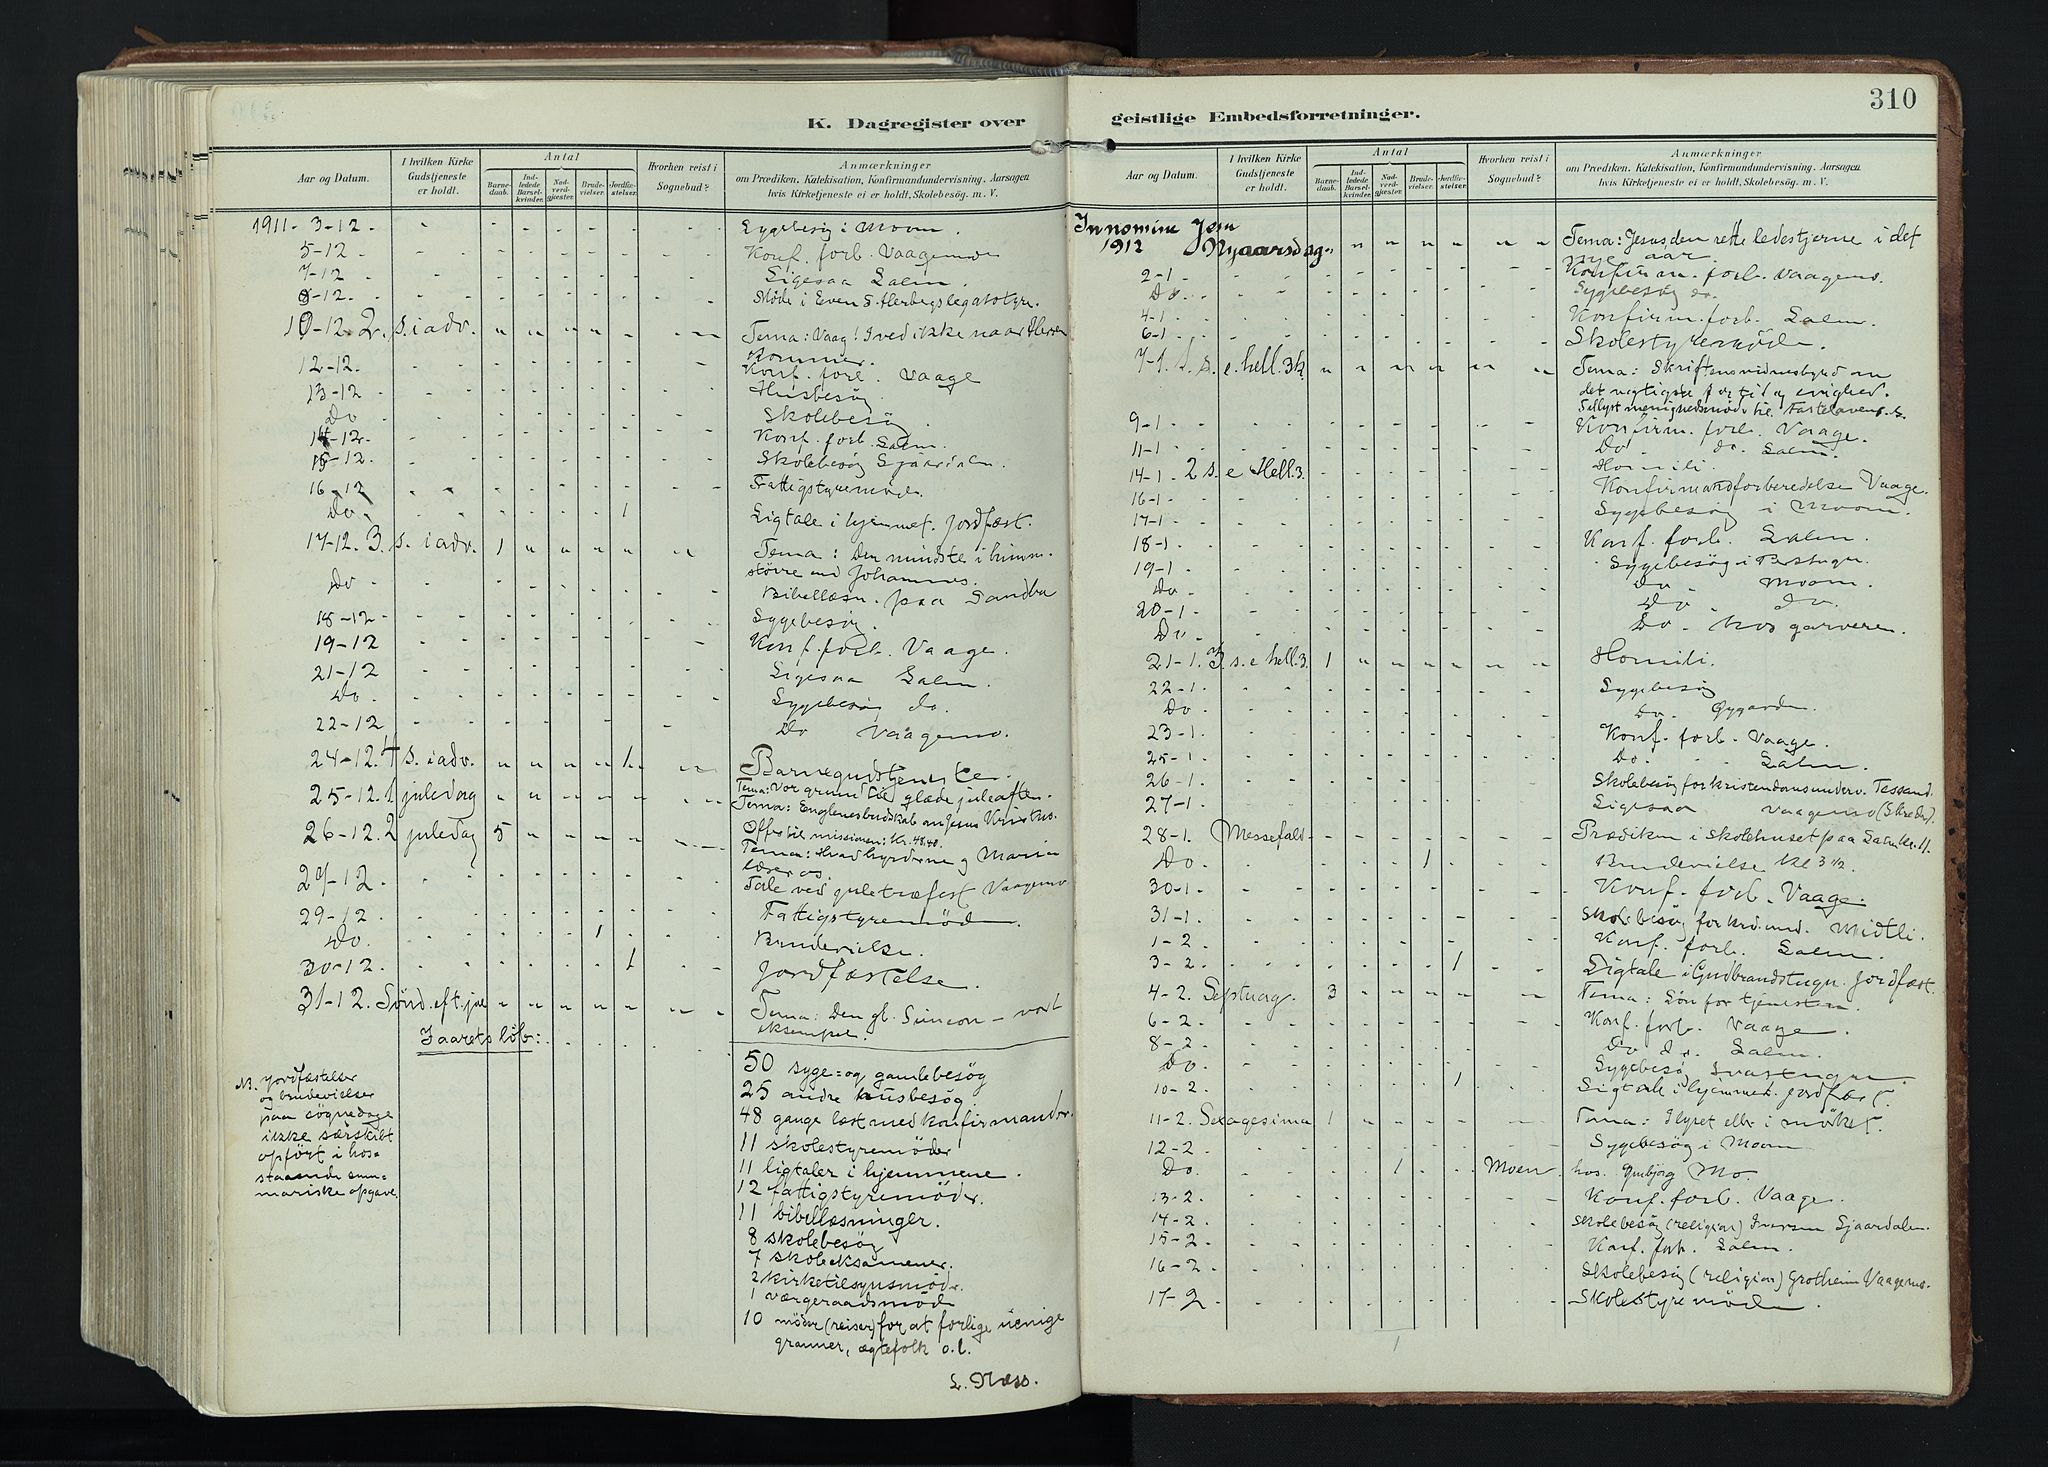 310
K. Dagregister over geistlige Embedsforretninger.
Aar og Datum. I hvilken Kirke Gudstjeneste er holdt. Antal Barnedaab. Indledede Barselkvinder. Nadverdgjæster. Brudevielser. Jordfæstelser. Hvorhen reist i Sognebud? Anmærkninger om Prædiken, Katekisation, Konfirmandundervisning, Aarsagen hvis Kirketjeneste ei er holdt, Skolebesøg. m. V.
1911. 3-12. Sygebesøg i Moom.
5-12 Konf. forb. Vaagemo
7-12 Ligesaa Zalm.
8-12. Møde i Even S. legatstyre.
10-12. 2. s. i adv. " " " " " Tema: Vaag! I ved ikke naar Herren
kommer.
12-12. Konf. forb. Vaage
13-12 Husbesøg
Do Skolebesøg
14-12. Konf. forb. Zalm.
15-12 Skolebesøg Sjaardalen.
16-12 Fattigstyremøde.
Do 1 Ligtale i hjemmet. Jordfæst.
17-12. 3. s. i adv. 1 " " " " Tema: Den mindste i himm.
større end Johannes.
Do Bibellæsn. paa Sandbu
18-12 Sygebesøg.
19-12 Konf. forb. Vaage.
21-12 Ligesaa Zalm.
Do. Sygebesøg do.
22-12 Do Vaagemo.
24-12. 4 s. i adv. " " " " 1. Barnegudstjeneste.
Tema: Vor grund til glæde juleaften.
25-12. 1 juledag " " " " " Tema: Englenes budskab om Jesus Kristus.
Offer til missionen: Kr. 48.40.
26-12. 2 juledag 5 " " " " Tema: Hvad hyrderne og Maria
lærer os.
27-12 Tale ved juletræfest Vaagemo
29-12 Fattigstyremøde.
Do. 1 Brudevielse.
30-12. 1 Jordfæstelse.
31-12. Sønd. eft. jul " " " " " Tema: Den gl. Simeon - vort
eksempel.
I aarets løb:
50 syge= og gamlebesøg
25 andre husbesøg
48 gange læst med konfirmander.
11 skolestyremøder
11 ligtaler i hjemmene.
12 fattigstyremøder.
11 bibellæsninger.
8 skolebesøg
7 skoleeksamener.
2 kirketilsynsmøder.
1 værgeraadsmøde
10 møder (reiser) for at forlige uenige
granner, ægtefolk o. l.
L. Næss.
NB. Jordfæstelser
og brudevielser
paa søgnedage
ikke særskilt
opført i hos=
staaende sum=
mariske opgave.
Aar og Datum. I hvilken Kirke Gudstjeneste er holdt. Antal Barnedaab. Indledede Barselkvinder. Nadverdgjæster. Brudevielser. Jordfæstelser. Hvorhen reist i Sognebud? Anmærkninger om Prædiken, Katekisation, Konfirmandundervisning, Aarsagen hvis Kirketjeneste ei er holdt, Skolebesøg. m. V.
In nomine Jesu
1912 Nyaarsdag " " " " " Tema: Jesus, den rette ledestjerne i det
nye aar.
2-1 Konfirm. forb. Vaagemo.
Do Sygebesøg do.
4-1 Konfirm. forb. Zalm.
6-1 Skolestyremøde.
7-1. 1. s. e. hell. 3 k. " " " " " Tema: Skriftens vidnesbyrd om
det vigtigste for tid og evighed.
menighedsmøde til Fastelavens s.
9-1 Konfirm. forb. Vaage.
11-1 Do do. Zalm.
14-1 2 s. e Hell. 3. Homili
16-1 Konfirmandforberedelse Vaage.
17-1 Sygebesøg i Moom.
18-1 Konf. forb. Zalm.
19-1 Sygebesøg i
Do. Do Moom.
20-1 Do do.
Do Do hos garveren.
21-1. 3. s. e hell. 3. 1 " " " " Homili.
22-1 Sygebesøg
Do Do. Gygarden.
23-1. Konf. forb. Vaage.
25-1 Do. Zalm.
26-1 Skolebesøg for kristendomsunderv. Tessand.
27-1 Ligesaa Vaagemo (Skreder).
28-1. Messefald Prædiken i skolehuset paa Zalm kl. 11.
Do. 1 Brudevielse kl 3 1/2.
30-1 Konf. forb. Vaage.
31-1 Skolebesøg for Midtli.
1-2 Konf. forb. Zalm.
3-2 1 Ligtale i Gudbrandstugu. Jordfæst.
4-2. Septuag. 3 " " " " Tema: Løn for tjenesten
6-2 Konf. forb. Vaage.
8-2 Do do. Zalm.
Do. Sygebesøg Svastugu.
10-2 1 Ligtale i hjemmet. Jordfæst.
11-2. Sexagesima 1 " " " " Tema: I lyset eller i mørket.
12-2 Sygebesøg i Moom
Do. 1 Moen. hos Mo.
13-2 Konf. forb. Vaage.
14-2 Skolebesøg (religion) Iversen Sjaardalen.
15-2 Konf. forb. Zalm.
16-2 Skolebesøg (religion) Grotheim Vaagemo.
17-2 Skolestyremøde.
1